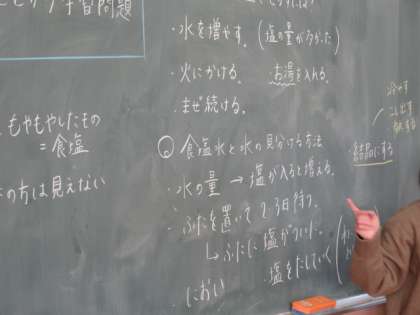 学習問題
もやもやしたもの
＝食塩
の方は見えない
・水を増やす。(塩の量が多かった)
・火にかける。・お湯を入れる。
・まぜ続ける。
食塩水と水の見分ける方法
・水の量 → 塩が入ると増える。
・ふたを置いて2,3日待つ。
↳ふたに塩がついた。
・におい ・塩をたしていく
結晶にする
冷やす